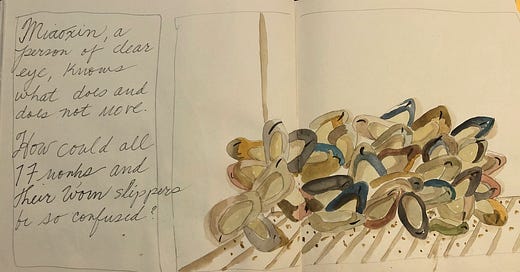 Miaoxin, a
person of clear
eye, knows
what does and
does not move.
How could all
17 monks and
their worn slippers
be so confused?